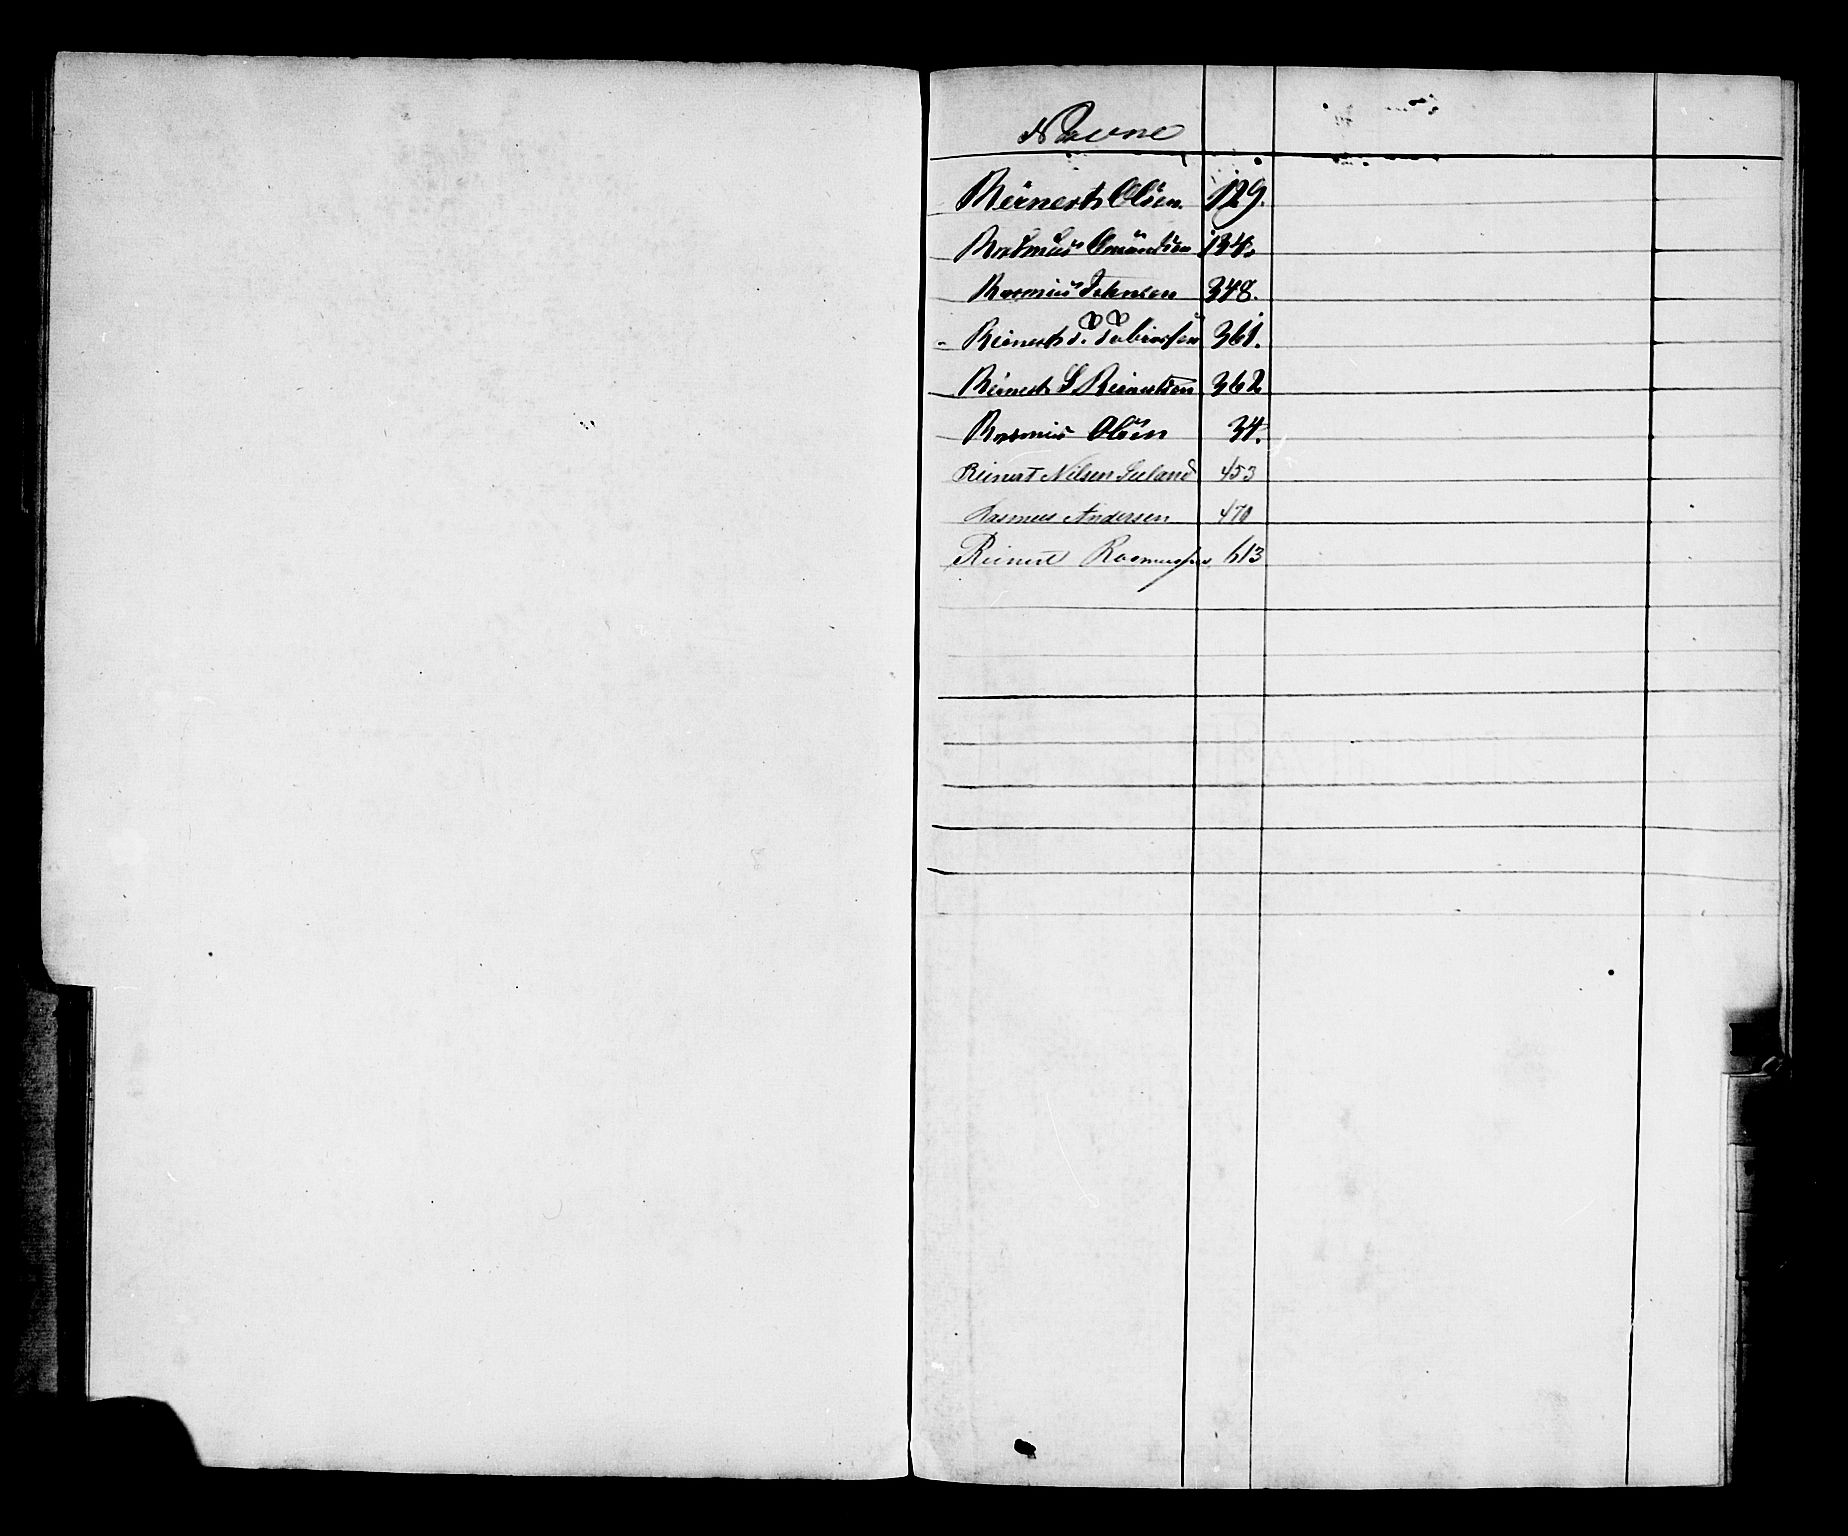 Navne
Reinerth Olsen. 129.
Rasmus Omundsen 134.
Rasmus Johnsen 348.
Reinerth T. Tobiassen 361.
Reinerth S. Reinertsen 362
Rasmus Olsen 34.
Reinert Nilsen Seland 453
Rasmus Andersen 470
Reinert Rasmussen 613